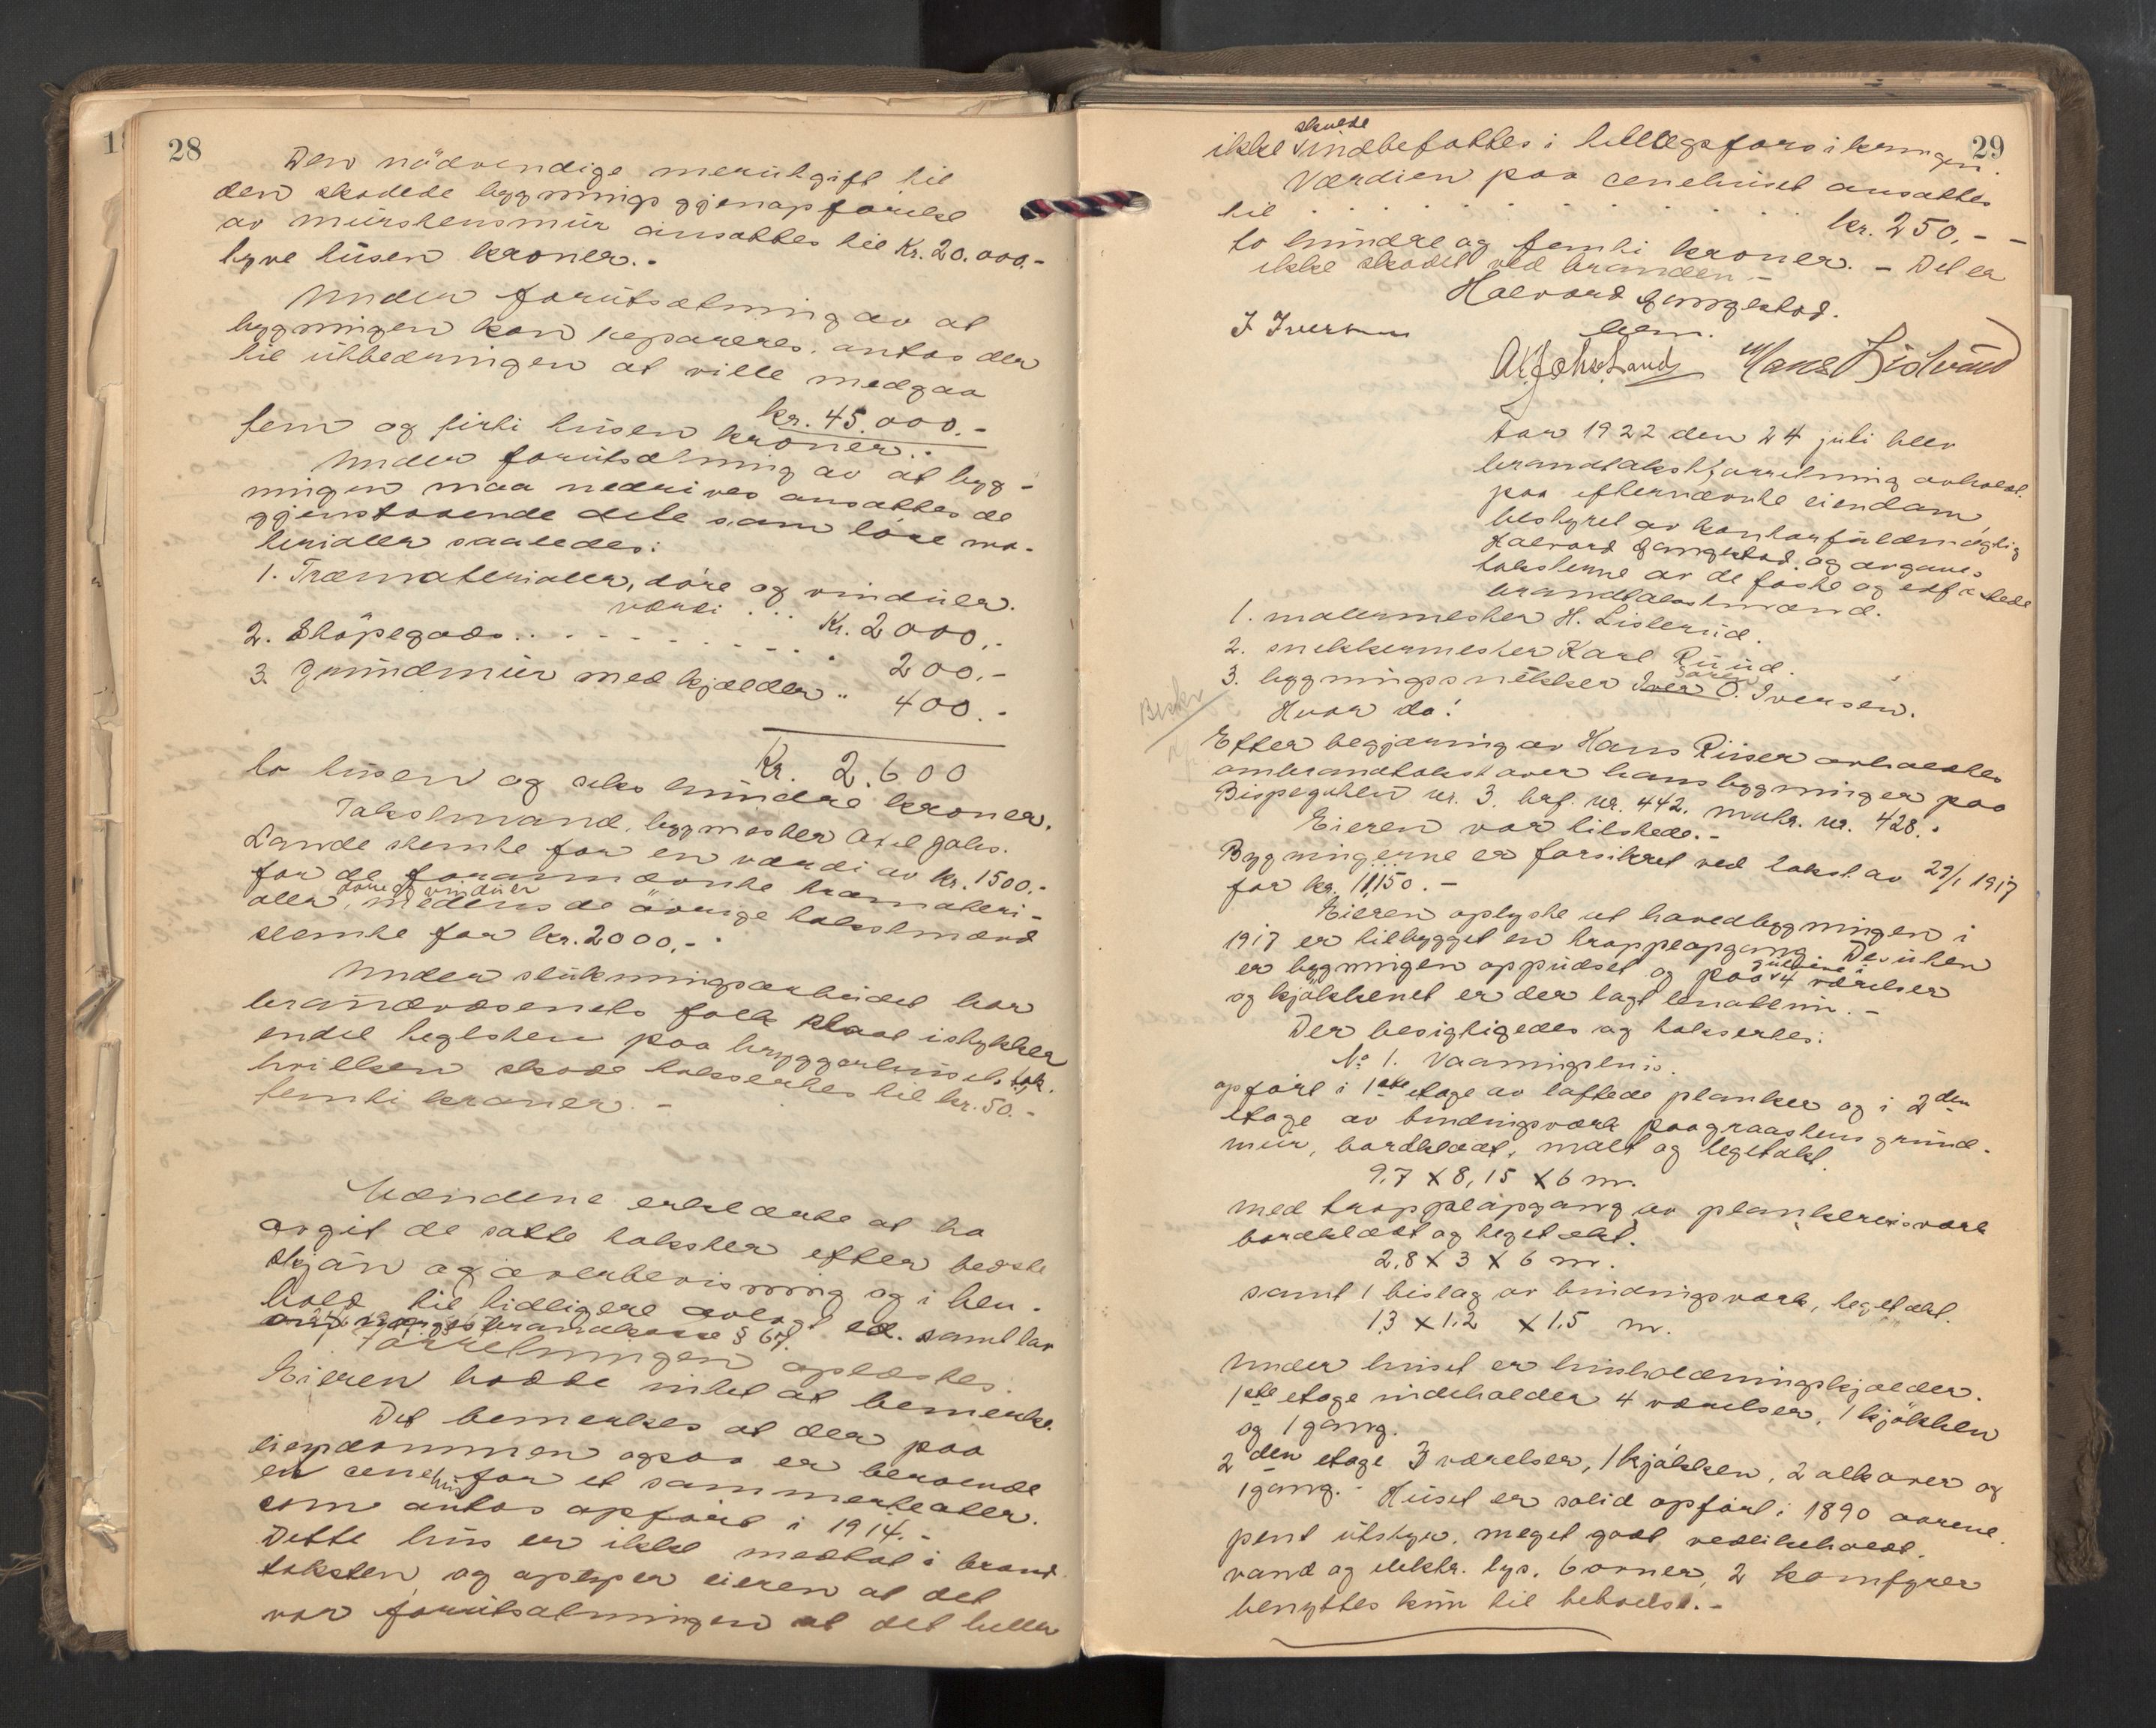 28
Den nödvendige merutgift til
den skadede bygnings gjenopförelse
av murstensmur ansattes til Kr. 20.000.-
tyve tusen kroner.-
Under forutsætning av at
bygningen kan repareres, antas der
til utbedringen at ville medgaa
kr. 45.000.-
fem og firti tusen kroner.-
Under forutsætning av at byg-
ningen maa nedrives ansattes de
gjenstaaende dele som löse ma-
terialer saaledes:
1. Træmaterialer, döre og vinduer.
værdi ... Kr. 2000,-
2. Stöpegods . . - - - - - - . 200,-
3. Grundmur med kjælder " 400.-
Kr. 2.600
to tusen og seks hundre kroner.
Takstmand, bygmester Axel Johs.
Lande stemte for en værdi av kr. 1500.-
for de forannævnte træmateri-
döre og vinduer
aller, medens de övrige takstmænd
stemte for kr. 2000,-.
Under slukningsarbeidet har
brandvæsenets folk slaat istykker
endel teglsten paa bryggerhusets tak.
hvilken skade taksertes til kr. 50.-
femti kroner.-
Mændene erklærte at ha
avgit de satte takster efter bedste
skjön og overbevisning og i hen-
hold til tidligere avlagt ed. samt lov
om Norges brandkasse § 67.
Forretningen oplæstes.
Eieren hadde intet at bemerke.
Det bemerkes at der paa
eiendommen ogsaa er beroende
en cenehus for et sommerteater.
som antas opfört i 1914.-
Dette hus er ikke medtat i brand
taksten og oplyser eieren at det
var forutsætningen at det heller
29
skulde
ikke indbefattes i tillægsforsikringen.
Værdien paa cenehuset ansattes
til . . . . . . . . . . kr. 250,- -
to hundre og femti kroner. - Det er
ikke skadet ved branden.-
Halvard Gangestad.
J. Iversen
Axel Johs. Lande Hans Lidtvand
Aar 1922 den 24 juli blev
brandtakstforretning avholdt
paa efternævnte eiendom,
bestyret av kontorfuldmægtig
Halvard Gangestad. og avgaves
taksterne av de faste og edfæstede
brandtakstmænd.
1. malermester H. Listerud.
2. snekkermester Karl Ruud.
Sören
3. bygningssnekker Iver O. Iversen.
Hvor da!
Efter begjæring av Hans Riiser avholdtes
ombrandtakst over hans bygninger paa
Bispegaten nr. 3. brf. nr. 442. matr. nr. 428.-
Eieren var tilstede.-
Bygningerne er forsikret ved takst av 29/1 1917
for kr. 11,150.-
Eieren oplyste at hovedbygningen i
1917 er tilbygget en trappeopgang. Desuten
er bygningen oppudset og paa gulvene i 4 værelser
og kjökkenet er der lagt linoleum.-
Der besigtigedes og taksertes:
No 1. Vaaningshus.
opfört i 1ste etage av laftede planker og i 2den
etage av bindingsværk paa graastens grund-
mur, bordklædt, malt og tegltækt.
9,7 X 8,15 X 6 m.
med trappeopgang av plankereisværk
bordklædt og tegltækt.
2,8 X 3 X 6 m.
samt 1 bislag av bindingsværk, tegltækt.
1,3 X 1,2 X 1,5 m.
Under huset er husholdningskjælder.
1ste etage indeholder 4 værelser, 1 kjökken
og 1 gang.
2den etage 3 værelser, 1 kjökken, 2 alkover og
1 gang.- Huset er solid opfört i 1890 aarene.
pent utstyr, meget godt vedlikeholdt.
vand og elektr. lys. 6 ovner, 2 komfyrer
benyttes kun til beboelse.-